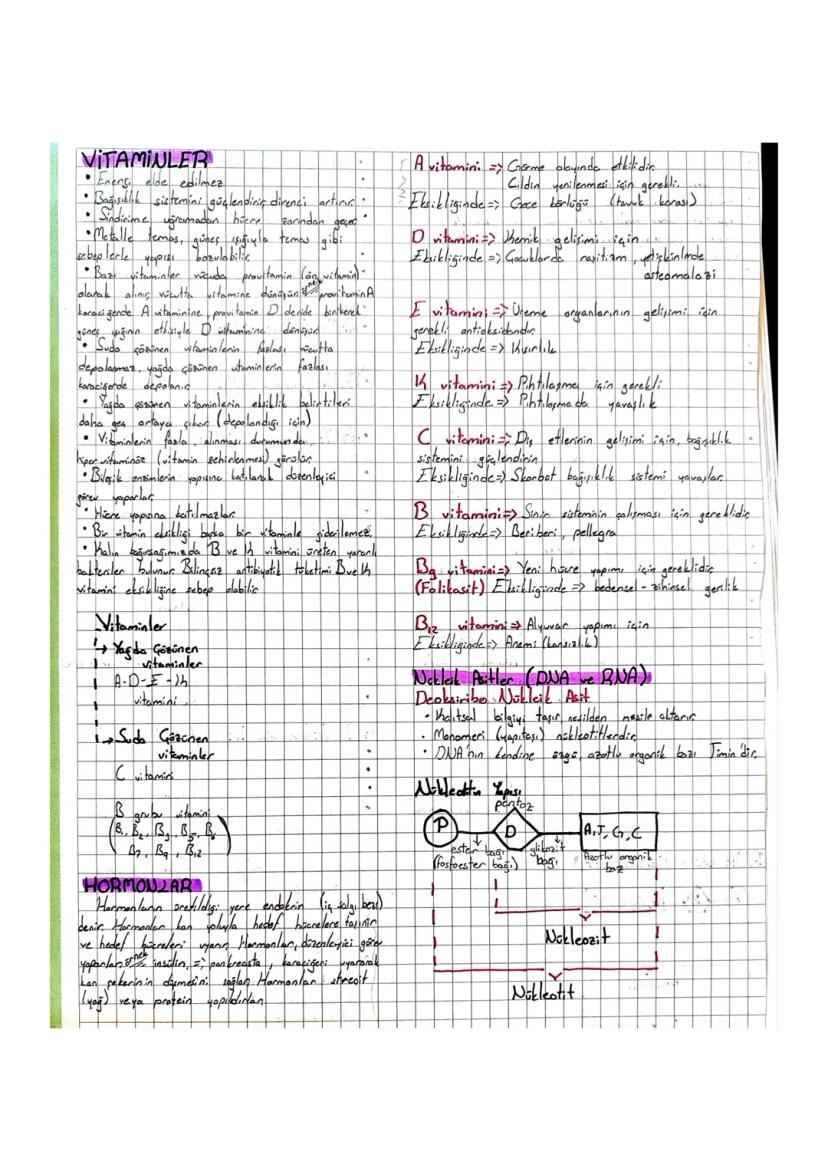 VİTAMİNLER
• Enerji elde edilmez
• Bağışıklık sistemini güçlendirir, direnci artırır.
• Sindirime uğramadan hücre zarından geçer
• Metalle temas, güneş ışığıyla temas gibi
sebeplerle yapısı bozulabilir
• Bazı vitaminler vücuda provitamin (ön vitamin)
olarak alınır, vücutta vitamine dönüşür örnek provitamin A
karaciğerde A vitaminine, provitamin D deride birikerek
güneş ışığının etkisiyle D vitaminine dönüşür
• Suda çözünen vitaminlerin fazlası vücutta
depolanmaz, yağda çözünen vitaminlerin fazlası
karaciğerde depolanır
• Yağda çözünen vitaminlerin eksiklik belirtileri
daha geç ortaya çıkar (depolandığı için)
• Vitaminlerin fazla alınması durumunda
hipervitaminöz (vitamin zehirlenmesi) görülür
• Bileşik enzimlerin yapısına katılarak düzenleyici
görev yaparlar
• Hücre yapısına katılmazlar
• Bir vitamin eksikliği başka bir vitaminle giderilemez.
• Kalın bağırsağımızda B ve K vitamini üreten yararlı
bakteriler bulunur Bilinçsiz antibiyotik tüketimi B ve K
vitamini eksikliğine sebep olabilir
Vitaminler
→ Yağda Çözünen
vitaminler
A-D-E-K
vitamini
→ Suda Çözünen
vitaminler
C vitamini
B grubu vitamini
(B1, B2, B3, B5, B6
B7, B9, B12)
HORMONLAR
Hormonların üretildiği yere endokrin (iç salgı bezi)
denir Hormonlar kan yoluyla hedef hücrelere taşınır
ve hedef hücreleri uyarır Hormonlar, düzenleyici görev
yaparlar örnek insülin, => pankreasta, karaciğeri uyararak
kan şekerinin düşmesini sağlar Hormonlar steroit
(yağ) veya protein yapılıdırlar
A vitamini => Görme olayında etkilidir
Cildin yenilenmesi için gerekli.
Eksikliğinde => Gece körlüğü (tavuk karası)
D vitamini => Kemik gelişimi için
Eksikliğinde => Çocuklarda raşitizm, yetişkinlerde
osteomalazi
E vitamini => Üreme organlarının gelişimi için
gerekli antioksidandır
Eksikliğinde => Kısırlık
K vitamini => Pıhtılaşma için gerekli
Eksikliğinde => Pıhtılaşmada yavaşlık
C vitamini => Diş etlerinin gelişimi için, bağışıklık
sistemini güçlendirir
Eksikliğinde => Skorbüt bağışıklık sistemi yavaşlar
B vitamini => Sinir sisteminin çalışması için gereklidir
Eksikliğinde => Beriberi, pellegra
B9 vitamini => Yeni hücre yapımı için gereklidir
(Folikasit) Eksikliğinde => bedensel-zihinsel gerilik
B12 vitamini => Alyuvar yapımı için
Eksikliğinde => Anemi (kansızlık)
Nükleik Asitler (DNA ve RNA)
Deoksiribo Nükleik Asit
• Kalıtsal bilgiyi taşır, nesilden nesile aktarır
• Monomeri (yapıtaşı) nükleotitlerdir
• DNA'nın kendine özgü, azotlu organik bazı Timin'dir.
Nükleotitin Yapısı
pentoz
P
D
A, T, G, C
ester bağı
(fosfoester bağı)
glikozit
bağı
Azotlu organik
baz
Nükleozit
Nükleotit